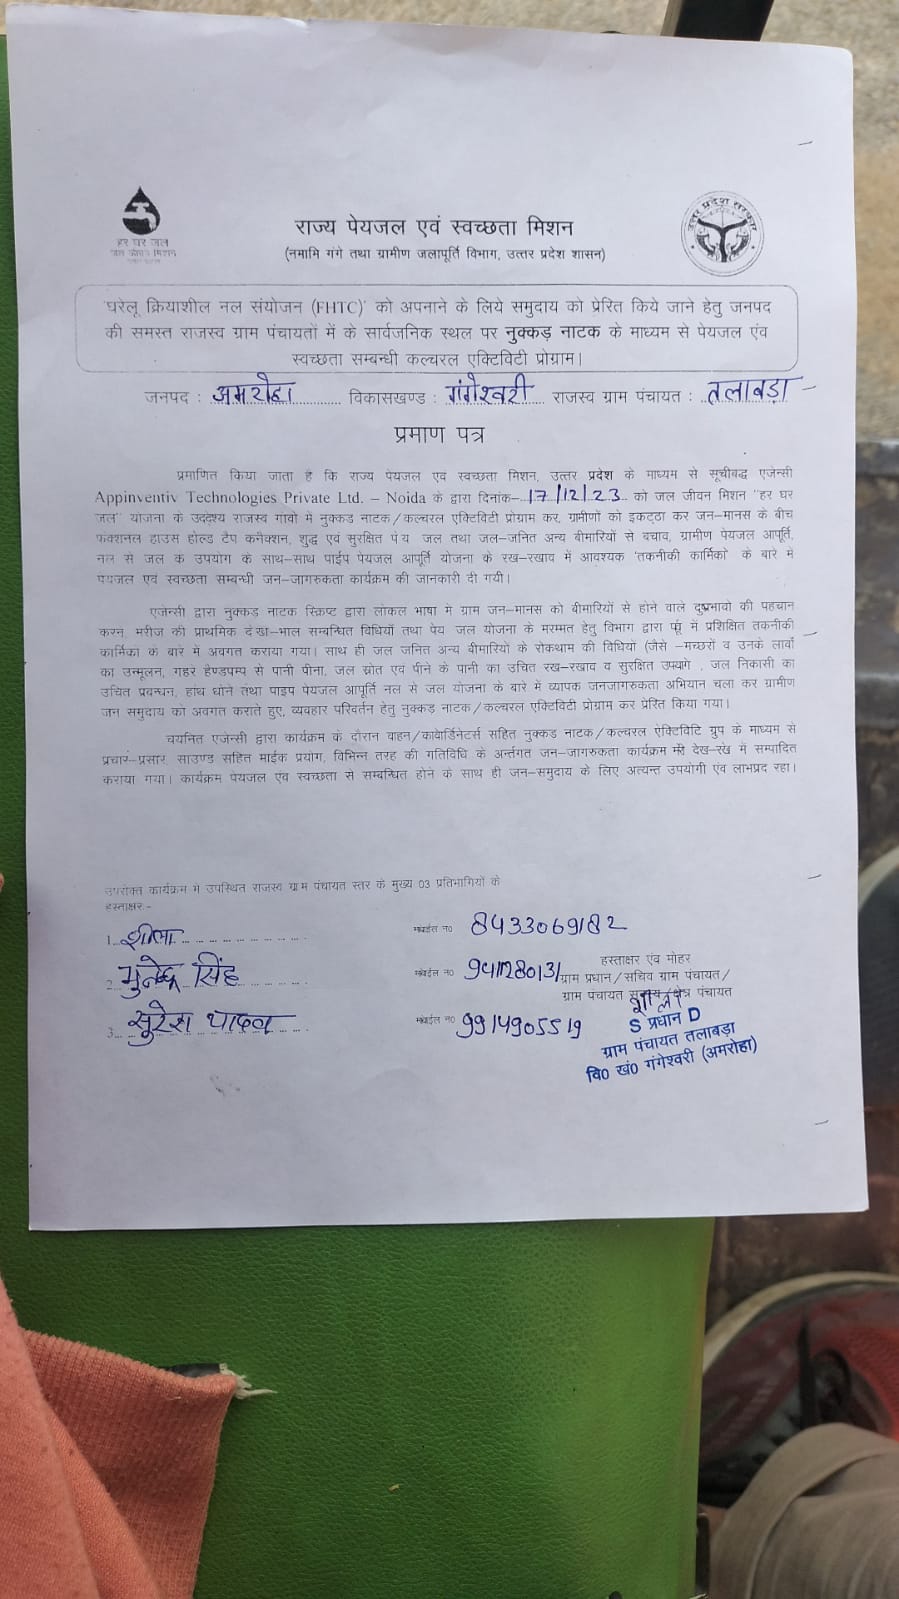 हर घर जल
जल जीवन मिशन
उत्तर प्रदेश सरकार
राज्य पेयजल एवं स्वच्छता मिशन
(नमामि गंगे तथा ग्रामीण जलापूर्ति विभाग, उत्तर प्रदेश शासन)
'घरेलू क्रियाशील नल संयोजन (FHTC)' को अपनाने के लिये समुदाय को प्रेरित किये जाने हेतु जनपद
की समस्त राजस्व ग्राम पंचायतों में के सार्वजनिक स्थल पर नुक्कड़ नाटक के माध्यम से पेयजल एंव
स्वच्छता सम्बन्धी कल्चरल एक्टिविटी प्रोग्राम।
जनपद : अमरोहा विकासखण्ड : गंगेश्वरी राजस्व ग्राम पंचायत : तलाबड़ा
प्रमाण पत्र
प्रमाणित किया जाता है कि राज्य पेयजल एवं स्वच्छता मिशन, उत्तर प्रदेश के माध्यम से सूचीबद्ध एजेन्सी
Appinventiv Technologies Private Ltd. – Noida के द्वारा दिनांक– 17/12/23 को जल जीवन मिशन "हर घर
जल" योजना के उद्देश्य राजस्व गांवों में नुक्कड़ नाटक/कल्चरल एक्टिविटी प्रोग्राम कर, ग्रामीणों को इकट्ठा कर जन–मानस के बीच
फंक्शनल हाउस होल्ड टैप कनैक्शन, शुद्ध एवं सुरक्षित पेय जल तथा जल–जनित अन्य बीमारियों से बचाव, ग्रामीण पेयजल आपूर्ति,
नल से जल के उपयोग के साथ–साथ पाईप पेयजल आपूर्ति योजना के रख–रखाव में आवश्यक 'तकनीकी कार्मिकों' के बारे में
पेयजल एवं स्वच्छता सम्बन्धी जन–जागरुकता कार्यक्रम की जानकारी दी गयी।
एजेन्सी द्वारा नुक्कड़ नाटक स्क्रिप्ट द्वारा लोकल भाषा में ग्राम जन–मानस को बीमारियों से होने वाले दुष्प्रभावो की पहचान
करने, मरीज की प्राथमिक देखा–भाल सम्बन्धित विधियों तथा पेय जल योजना के मरम्मत हेतु विभाग द्वारा पूर्व में प्रशिक्षित तकनीकी
कार्मिकों के बारे में अवगत कराया गया। साथ ही जल जनित अन्य बीमारियों के रोकथाम की विधियों (जैसे –मच्छरों व उनके लार्वा
का उन्मूलन, गहरे हैण्डपम्प से पानी पीना, जल स्रोत एवं पीने के पानी का उचित रख–रखाव व सुरक्षित उपयोग , जल निकासी का
उचित प्रबन्धन, हांथ धोने तथा पाइप पेयजल आपूर्ति नल से जल योजना के बारे में व्यापक जनजागरुकता अभियान चला कर ग्रामीण
जन समुदाय को अवगत कराते हुए, व्यवहार परिवर्तन हेतु नुक्कड़ नाटक/कल्चरल एक्टिविटी प्रोग्राम कर प्रेरित किया गया।
चयनित एजेन्सी द्वारा कार्यक्रम के दौरान वाहन/कोवार्डिनेटर्स सहित नुक्कड नाटक/कल्चरल ऐक्टिविटि ग्रुप के माध्यम से
प्रचार–प्रसार, साउण्ड सहित माईक प्रयोग, विभिन्न तरह की गतिविधि के अर्न्तगत जन–जागरुकता कार्यक्रम मेरी देख–रेख में सम्पादित
कराया गया। कार्यक्रम पेयजल एंव स्वच्छता से सम्बन्धित होने के साथ ही जन–समुदाय के लिए अत्यन्त उपयोगी एंव लाभप्रद रहा।
उपरोक्त कार्यक्रम मे उपस्थित राजस्व ग्राम पंचायत स्तर के मुख्य 03 प्रतिभागियों के
हस्ताक्षर:-
1. शीला मोबाईल न0 8433069182
2. मुनेन्द्र सिंह मोबाईल न0
3. सुरेश यादव मोबाईल न0 9914905519
हस्ताक्षर एंव मोहर
ग्राम प्रधान/सचिव ग्राम पंचायत/
ग्राम पंचायत सदस्य/क्षेत्र पंचायत
शीला
S प्रधान D
ग्राम पंचायत तलाबड़ा
वि0 खं0 गंगेश्वरी (अमरोहा)